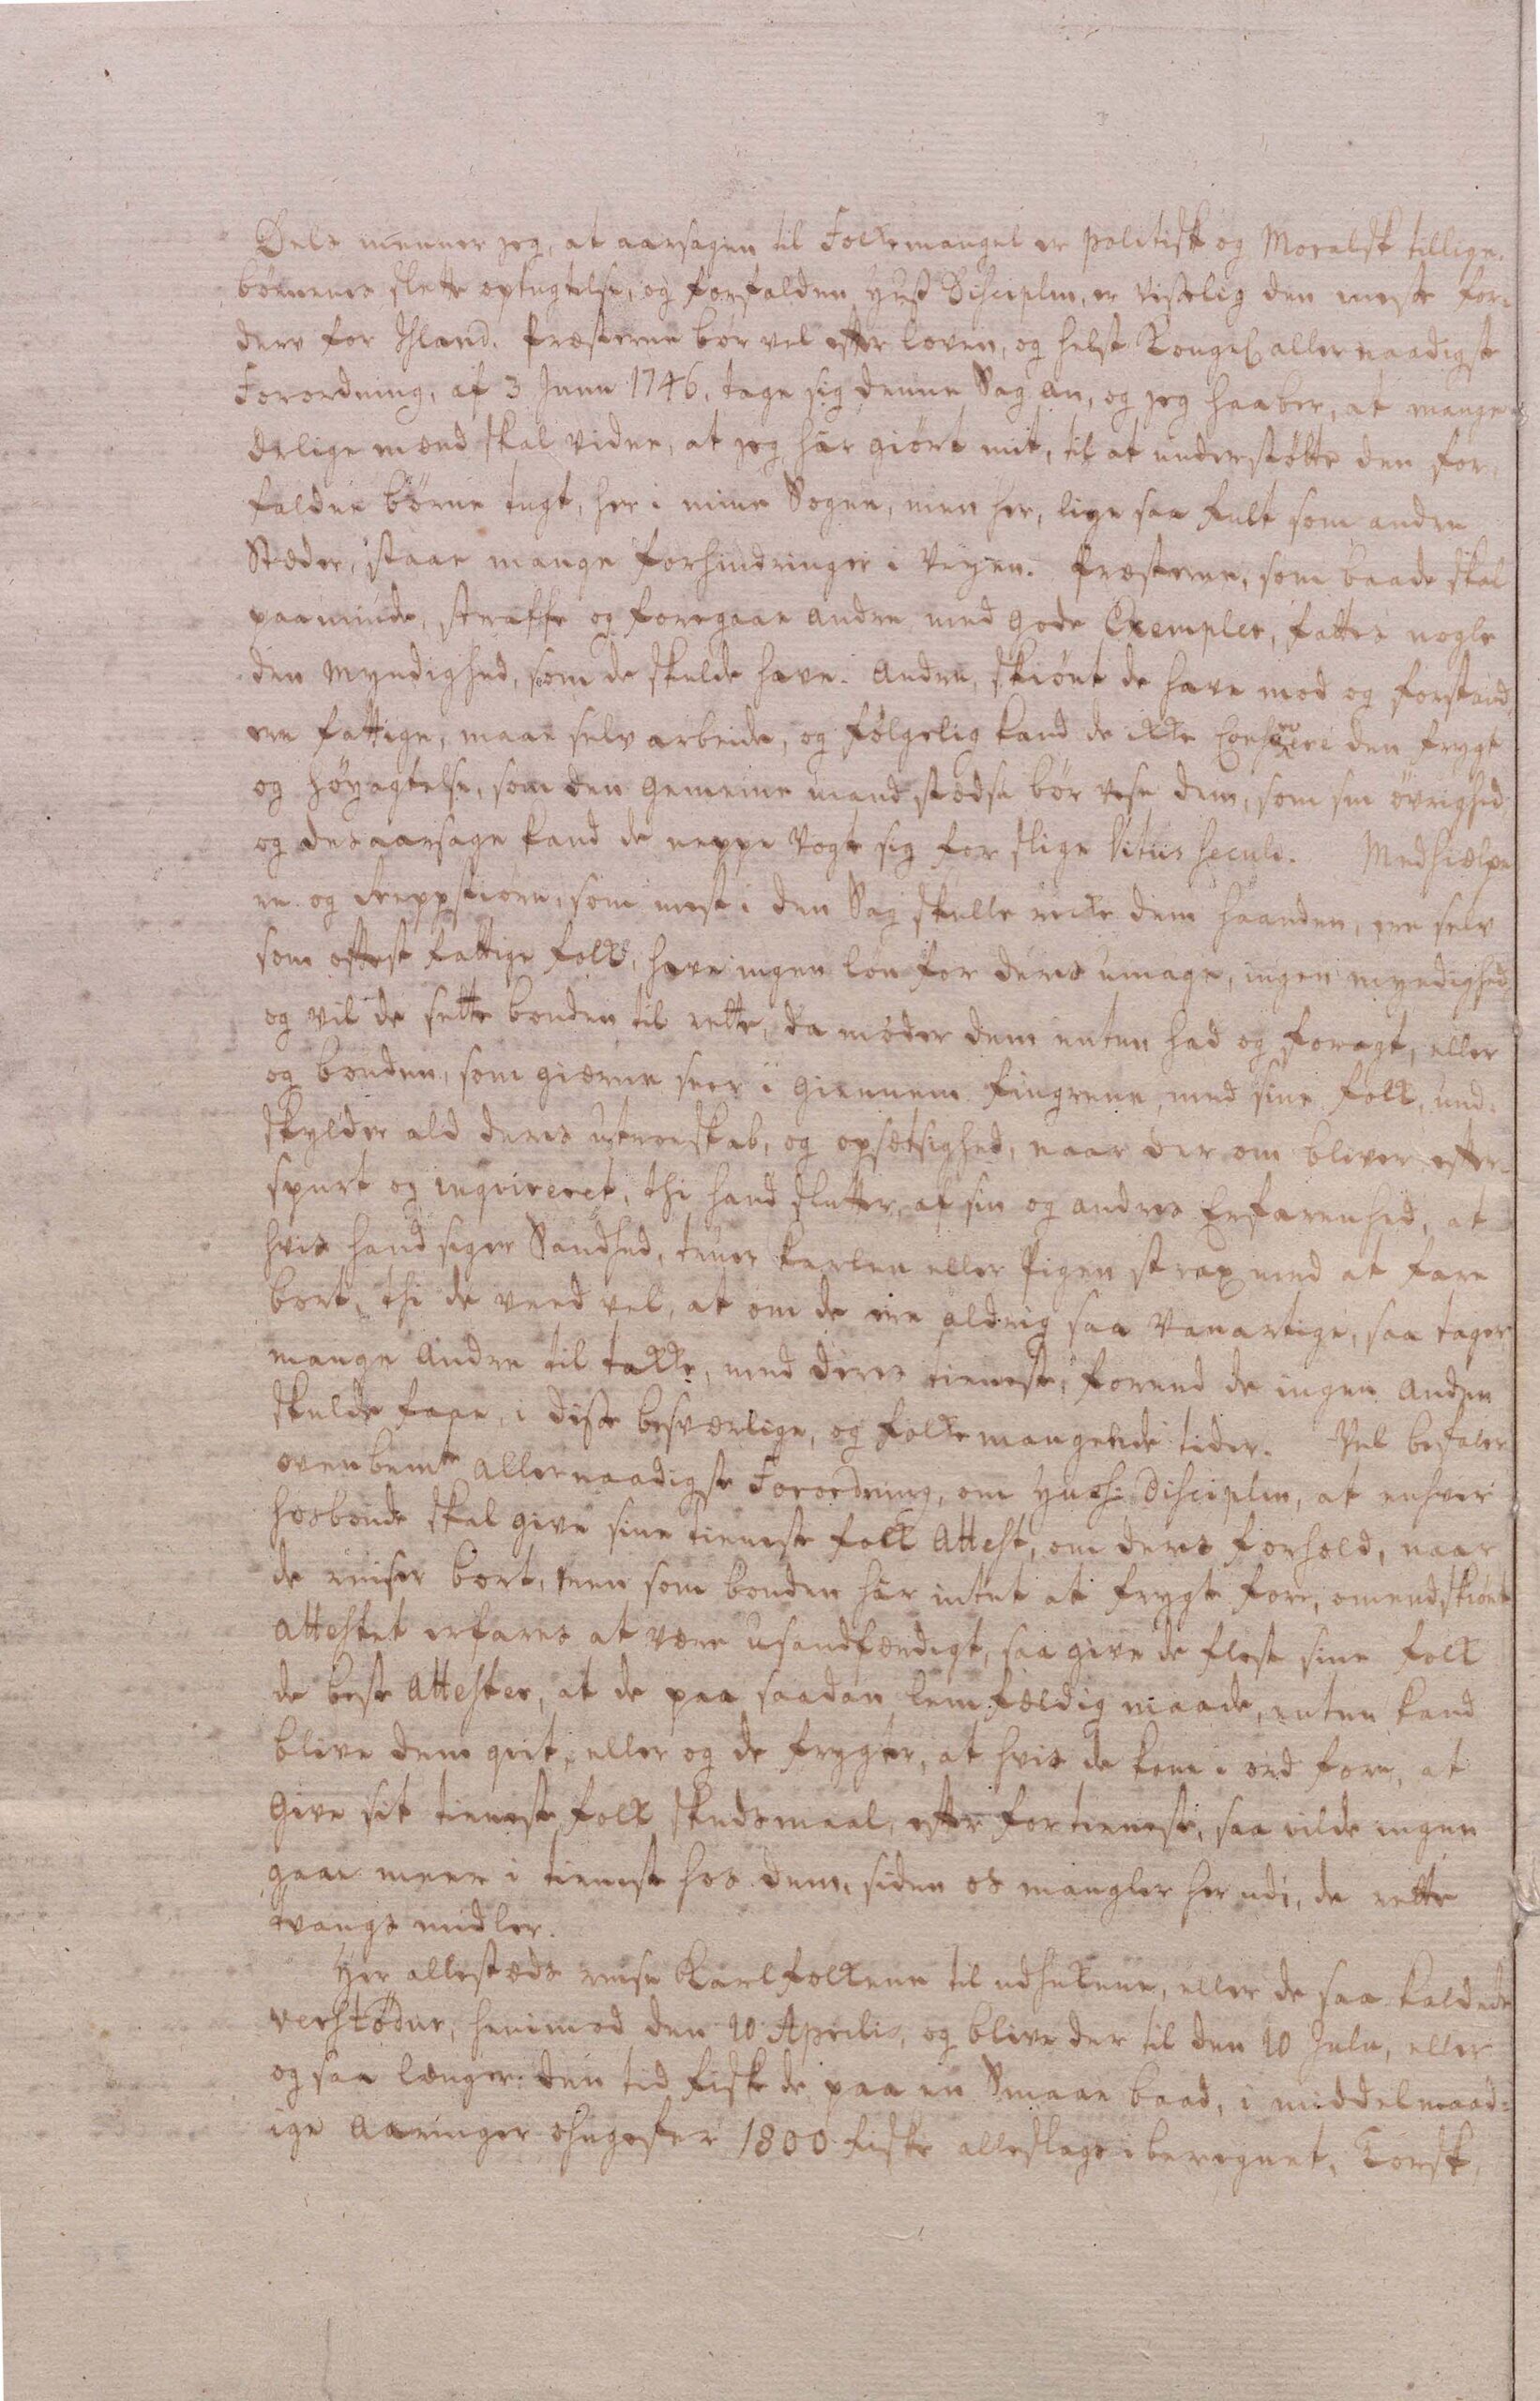 Dels meener jeg, at aarsagen til Folkemangel er politisk og Moralsk tillige.
børnenes slette optugtelse, og forfalden Huus Disciplin, er visselig den meste for-
derv for Island. Præsterne bør vel efter loven, og helst Kongel allernaadigste
Forordning, af 3 Junii 1746, tage sig denne Sag an, og jeg haaber, at mange
ærlige mænd skal vidne, at jeg har giört mit, til at understötte den for-
faldne börne tugt, her i mine Sogne, men her, lige saa fult som andre
Stæder, staar mange forhindringer i Veyen. Præsterne, som baade skal
paaminde, straffe og foregaae andre med gode Exempler, fattes nogle
den Myndighed, som de skulde have. Andre, skiönt de have mod og forstand,
ere fattige, maae selv arbeide, og fölgelig kand de ikke Conservere den frygt
og höyagtelse, som den gemeene mand stedse bör vise dem, som sin övrighed,
og des aarsage kand de neppe vogte sig for slige Vitiis Seculi. Medhielpe
re og Repstiorn, som mest i den Sag skulle rekke dem haanden, ere selv
som oftest fattige folk, have ingen lön for deres umage, ingen myndighed,
og vil de sette bonden til rette, da möder dem enten had og foragt, eller
og bonden, som gierne seer i giennem fingrene med sine folk, und-
skylder ald deres utroeskab, og opsetsighed, naar der om bliver efter-
spurt og inqvireret, thi hand slutter, af sin og andres Erfarenhed, at
hvis hand siger Sandhed, truer karlen eller Pigen strax med at fare
bort, thi de veed vel, at om de ere aldrig saa vanartige, saa tager
mange andre til takke, med deres tieneste, forend de ingen anden
skulde faae, i disse besværlige, og folkemangende tider. Vel befaler
ovenbemte allernaadigste Forordning, om Huus Disciplin, at enhver
hosbonde skal give sine tieneste folk Attest, om deres forhold, naar
de reiser bort, men som bonden har intet at frygte fore, omendskiönt
Attestet erfares at være usandfærdigt, saa give de flest sine folk
de beste Attester, at de paa saadan lemfældig maade, enten kand
blive dem qvit, eller og de frygter, at hvis de kom i ord fore, at
give sit tieneste folk skudsmaal, efter fortieneste, saa vilde ingen
gaae meer i tieneste hos dem, siden os mangler her udi, de rette
tvangs midler.
Her allestæds reise Karlfolkene til udhukene, eller de saa kaldede
verstödur, henimod den 20 Aprilis, og blive der til den 10 Julii, eller
og saa længer. den tid fiske de paa en Smaae baad, i middelmaad-
ige Aaringer ohngefer 1800 fiske alleslags iberegnet, Torsk,